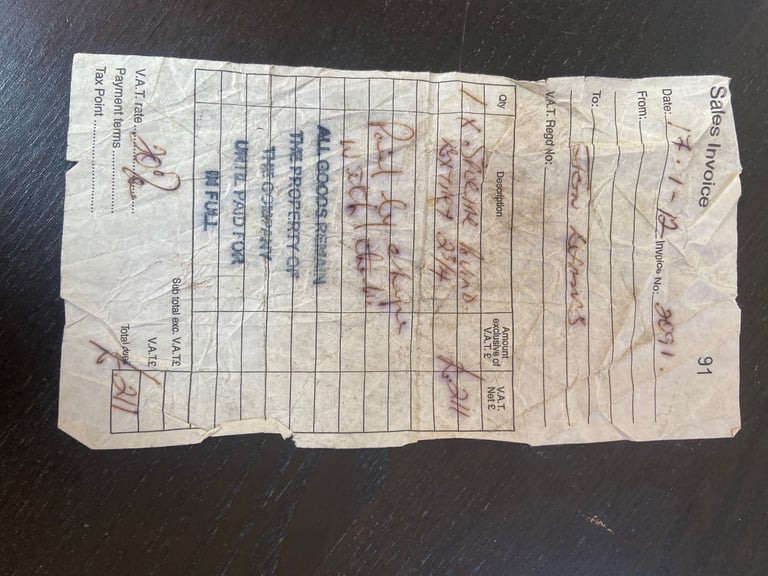 Sales Invoice 91
Date: 17.1-12 Invoice No: 2091.
From:
To:
V.A.T. Regd No:
Qty Description Amount exclusive of V.A.T. £ V.A.T. Net £
1 x £211
Paid by
with thanks
ALL GOODS REMAIN
THE PROPERTY OF
THE COMPANY
UNTIL PAID FOR
IN FULL
Sub total exc. V.A.T £
V.A.T. rate 20% V.A.T £
Payment terms Total due £211
Tax Point